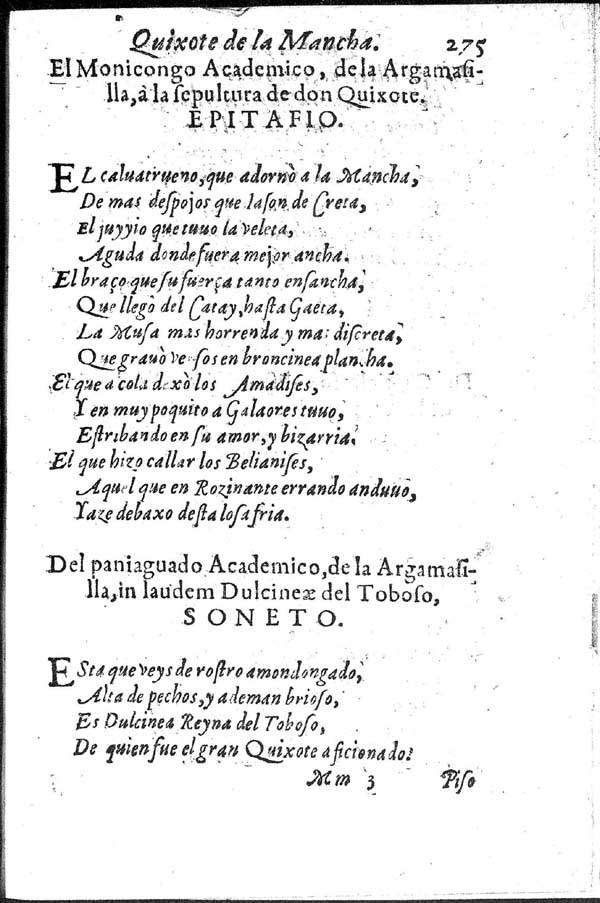 Quixote de la Mancha. 275
El Monicongo Academico, de la Argamasi-
lla, à la sepultura de don Quixote.
EPITAFIO.
EL caluatrueno, que adornò a la Mancha,
De mas despojos que Iason de Creta,
El juyzio que tuuo la veleta,
Aguda donde fuera mejor ancha.
El braço que su fuerça tanto ensancha,
Que llegò del Catay, hasta Gaeta,
La Musa mas horrenda y mas discreta,
Que grauò versos en broncinea plancha.
El que a cola dexò los Amadises,
Y en muy poquito a Galaores tuuo,
Estribando en su amor, y bizarria.
El que hizo callar los Belianises,
Aquel que en Rozinante errando anduuo,
Yaze debaxo desta losa fria.
Del paniaguado Academico, de la Argamasi-
lla, in laudem Dulcineæ del Toboso,
SONETO.
ESta que veys de rostro amondongado,
Alta de pechos, y ademan brioso,
Es Dulcinea Reyna del Toboso,
De quien fue el gran Quixote aficionado.
Mm 3 Piso